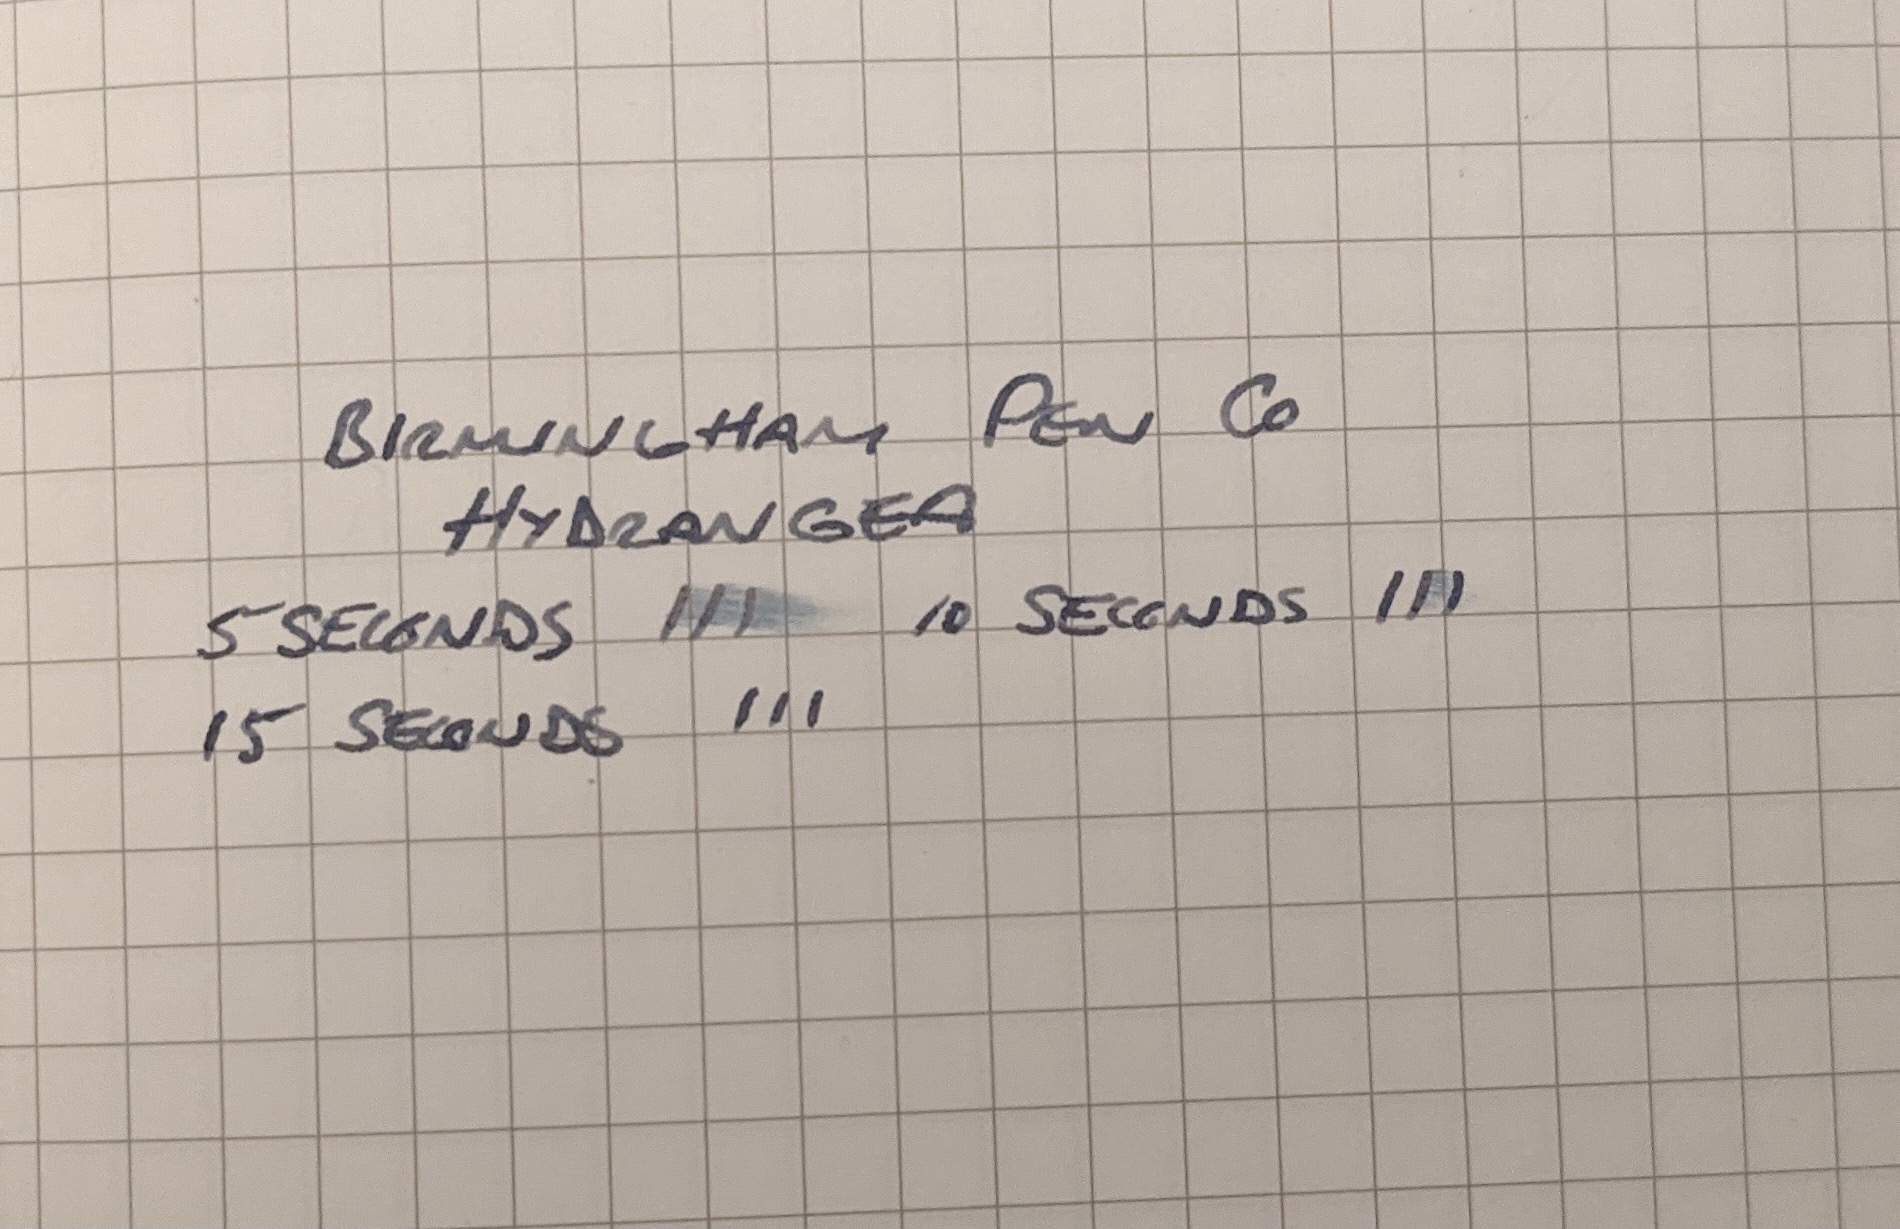 BIRMINGHAM PEN Co
HYDRANGEA
5 SECONDS /// 10 SECONDS ///
15 SECONDS ///